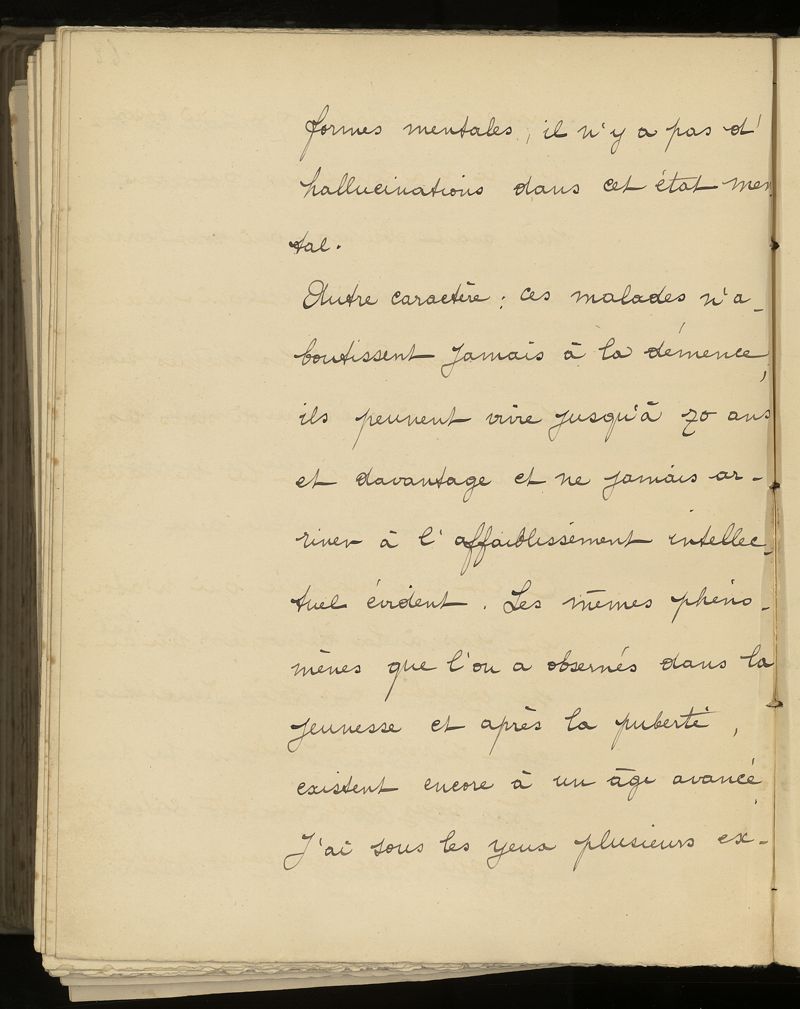 formes mentales, il n'y a pas d'
hallucinations dans cet état men
tal.
Autre caractère : ces malades n'a-
boutissent jamais à la démence,
ils peuvent vivre jusqu'à 70 ans
et davantage et ne jamais ar-
river à l'affaiblissement intellec-
tuel évident. Les mêmes phéno-
mènes que l'on a observés dans la
jeunesse et après la puberté,
existent encore à un âge avancé.
J'ai sous les yeux plusieurs ex-